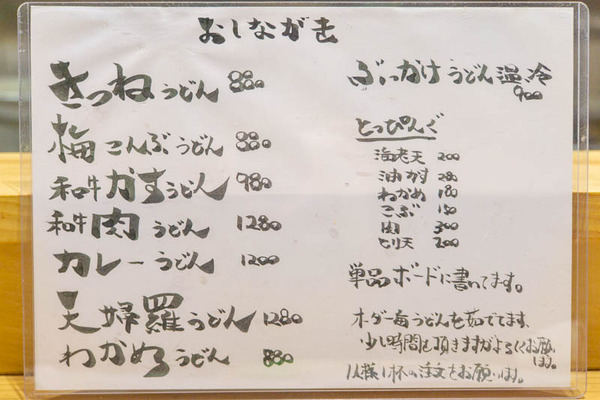 おしながき
きつねうどん 880
梅こんぶうどん 880
和牛かすうどん 980
和牛肉うどん 1280
カレーうどん 1200
天婦羅うどん 1280
わかめうどん 880
ぶっかけうどん 温 冷
900
とっぴんぐ
海老天 200
油かす 280
わかめ 180
こぶ 150
肉 300
とり天 200
単品ボードに書いてます。
オーダー毎うどんを茹でてます。
少し時間も頂きますがよろしくお願い
します。
1人様1杯の注文をお願いします。